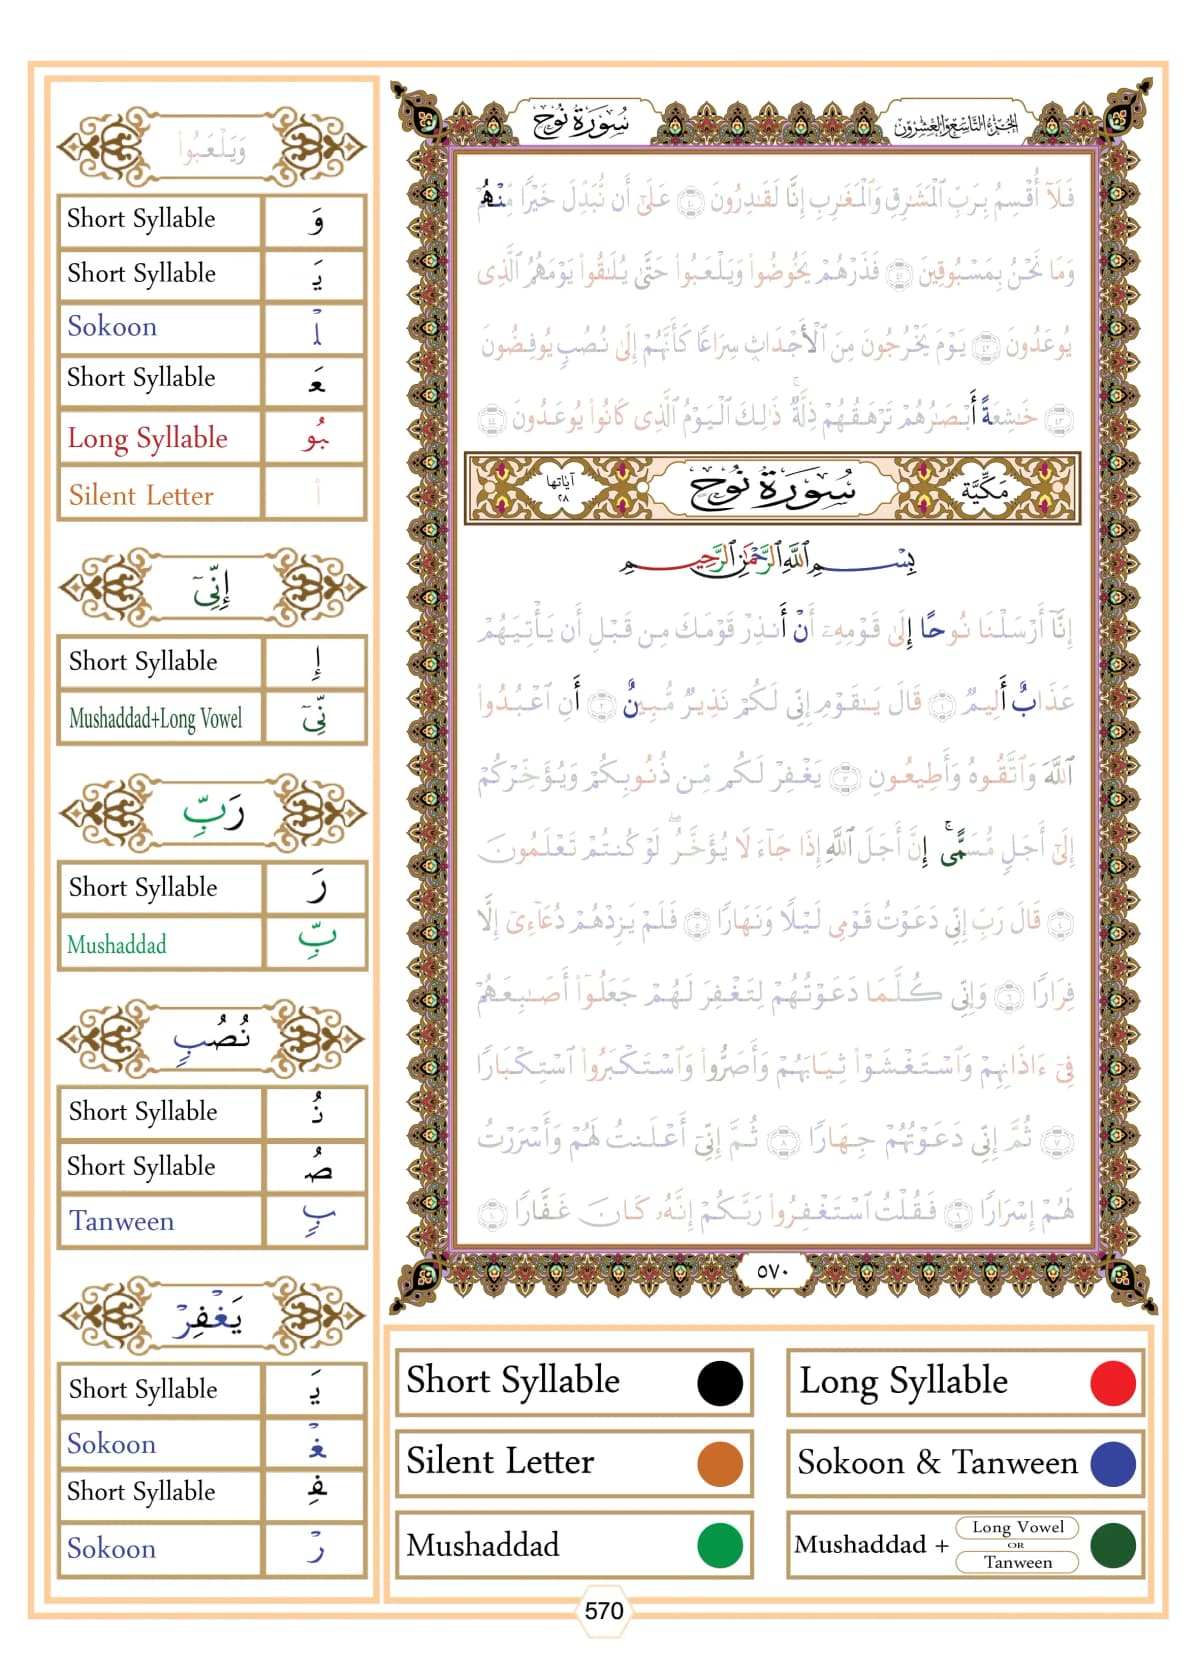 سُورَةُ نُوحٍ
الجُزْءُ التَّاسِعُ وَالعِشْرُونَ
فَلَآ أُقْسِمُ بِرَبِّ ٱلْمَشَٰرِقِ وَٱلْمَغَٰرِبِ إِنَّا لَقَٰدِرُونَ ٤٠ عَلَىٰٓ أَن نُّبَدِّلَ خَيْرًا مِّنْهُمْ
وَمَا نَحْنُ بِمَسْبُوقِينَ ٤١ فَذَرْهُمْ يَخُوضُوا۟ وَيَلْعَبُوا۟ حَتَّىٰ يُلَٰقُوا۟ يَوْمَهُمُ ٱلَّذِى
يُوعَدُونَ ٤٢ يَوْمَ يَخْرُجُونَ مِنَ ٱلْأَجْدَاثِ سِرَاعًا كَأَنَّهُمْ إِلَىٰ نُصُبٍ يُوفِضُونَ
٤٣ خَٰشِعَةً أَبْصَٰرُهُمْ تَرْهَقُهُمْ ذِلَّةٌ ۚ ذَٰلِكَ ٱلْيَوْمُ ٱلَّذِى كَانُوا۟ يُوعَدُونَ ٤٤
مَكِّيَّة
سُورَةُ نُوحٍ
آيَاتُهَا ٢٨
بِسْمِ ٱللَّهِ ٱلرَّحْمَٰنِ ٱلرَّحِيمِ
إِنَّآ أَرْسَلْنَا نُوحًا إِلَىٰ قَوْمِهِۦٓ أَنْ أَنذِرْ قَوْمَكَ مِن قَبْلِ أَن يَأْتِيَهُمْ
عَذَابٌ أَلِيمٌ ١ قَالَ يَٰقَوْمِ إِنِّى لَكُمْ نَذِيرٌ مُّبِينٌ ٢ أَنِ ٱعْبُدُوا۟
ٱللَّهَ وَٱتَّقُوهُ وَأَطِيعُونِ ٣ يَغْفِرْ لَكُم مِّن ذُنُوبِكُمْ وَيُؤَخِّرْكُمْ
إِلَىٰٓ أَجَلٍ مُّسَمًّى ۚ إِنَّ أَجَلَ ٱللَّهِ إِذَا جَآءَ لَا يُؤَخَّرُ ۖ لَوْ كُنتُمْ تَعْلَمُونَ
٤ قَالَ رَبِّ إِنِّى دَعَوْتُ قَوْمِى لَيْلًا وَنَهَارًا ٥ فَلَمْ يَزِدْهُمْ دُعَآءِىٓ إِلَّا
فِرَارًا ٦ وَإِنِّى كُلَّمَا دَعَوْتُهُمْ لِتَغْفِرَ لَهُمْ جَعَلُوٓا۟ أَصَٰبِعَهُمْ
فِىٓ ءَاذَانِهِمْ وَٱسْتَغْشَوْا۟ ثِيَابَهُمْ وَأَصَرُّوا۟ وَٱسْتَكْبَرُوا۟ ٱسْتِكْبَارًا
٧ ثُمَّ إِنِّى دَعَوْتُهُمْ جِهَارًا ٨ ثُمَّ إِنِّىٓ أَعْلَنتُ لَهُمْ وَأَسْرَرْتُ
لَهُمْ إِسْرَارًا ٩ فَقُلْتُ ٱسْتَغْفِرُوا۟ رَبَّكُمْ إِنَّهُۥ كَانَ غَفَّارًا ١٠
٥٧٠
وَيَلْعَبُوا۟
Short Syllable وَ
Short Syllable يَـ
Sokoon لْـ
Short Syllable ـعَـ
Long Syllable ـبُو
Silent Letter ا
إِنِّىٓ
Short Syllable إِ
Mushaddad+Long Vowel نِّىٓ
رَبِّ
Short Syllable رَ
Mushaddad بِّ
نُصُبٍ
Short Syllable نُـ
Short Syllable ـصُـ
Tanween ـبٍ
يَغْفِرْ
Short Syllable يَـ
Sokoon ـغْـ
Short Syllable ـفِـ
Sokoon ـرْ
Short Syllable
Long Syllable
Silent Letter
Sokoon & Tanween
Mushaddad
Mushaddad + Long Vowel OR Tanween
570